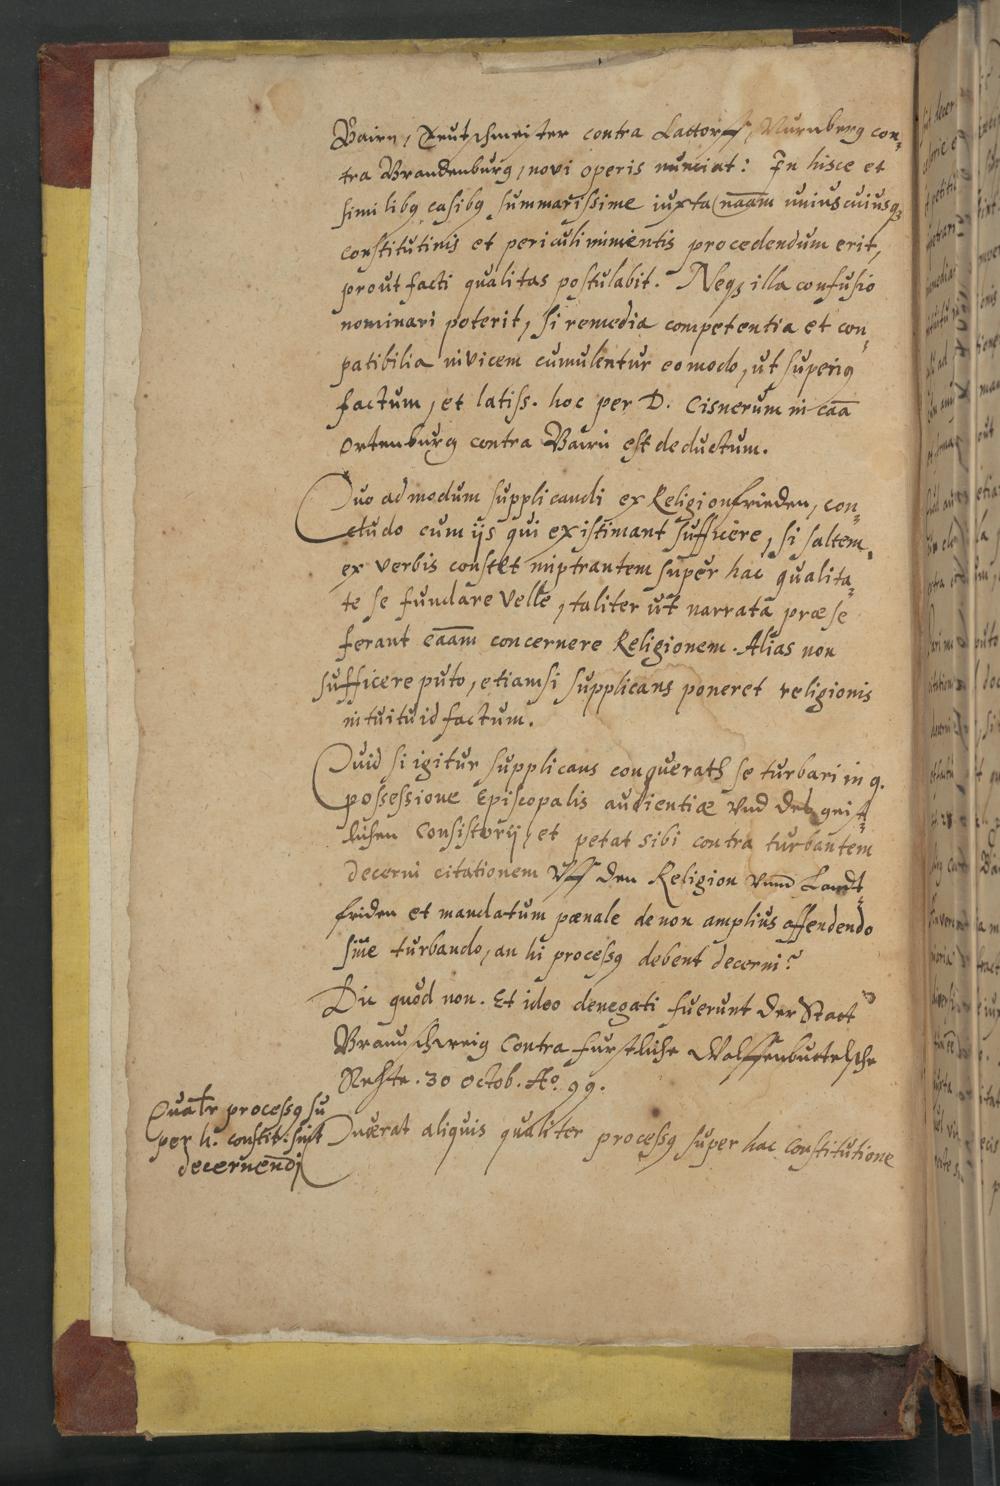 Bairn, Teutschmeister contra Lattorff, Nurnberg con-
tra Brandenburg, novi operis nunciat: In hisce et
similibq casibq summarissime iuxta naām uniuscuiusq
constitutinis et periculi iminentis procedendum erit,
prout facti qualitas postulabit. Neqз illa confusio
nominari poterit, si remedia competentia et con-
patibilia invicem cumulentur eo modo, ut superiq
factum, et latiss. hoc per D. Cisnerum in caā
Ortenburg contra Bairn est deductum.
Quo ad modum supplicandi ex Religionfrieden, con-
cludo cum ijs qui existimant sufficere, si saltem
ex verbis constet imptrantem super hac qualita-
te se fundare velle, taliter ut narrata præ se
ferant caām concernere Religionem. Alias non
sufficere puto, etiamsi supplicans poneret religionis
intuitu id factum.
Quid si igitur supplicans conquerat se turbari in q.
possessione Episcopalis audientiæ vnd des geist-
lichen Consistorij, et petat sibi contra turbantem
decerni citationem vff den Religion vnnd Landt
friden et mandatum pænale de non amplius offendendo
siue turbando, an hi processq debent decerni?
Dic quod non. Et ideo denegati fuerunt der Statt
Braunschweig contra furstliche Wolffenbuttelsche
Rechte. 30 Octob. Ao. 99.
Quatr processq su
per h. constit: sint
decernendi
Quærat aliquis qualiter processq super hac constitutione